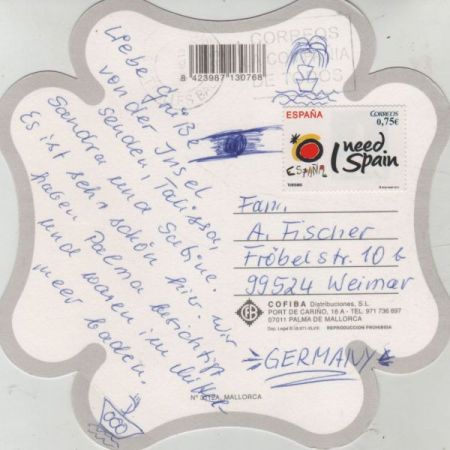 CORREOS
8 423987 130768
Liebe Grüße
von der Insel
senden, Talissa,
Sandra und Sabine.
Es ist sehr schön hier. Wir
haben Palma besichtigt
und waren im Mittel
meer baden.
ESPAÑA
CORREOS
0,75€
I need
Spain
ESPAÑA
TURISMO
Fam.
A. Fischer
Fröbelstr. 10 b
99524 Weimar
GERMANY
COFIBA Distribuciones, S.L
PORT DE CARIÑO, 16 A - TEL. 971 736 897
07011 PALMA DE MALLORCA
REPRODUCCION PROHIBIDA
MALLORCA